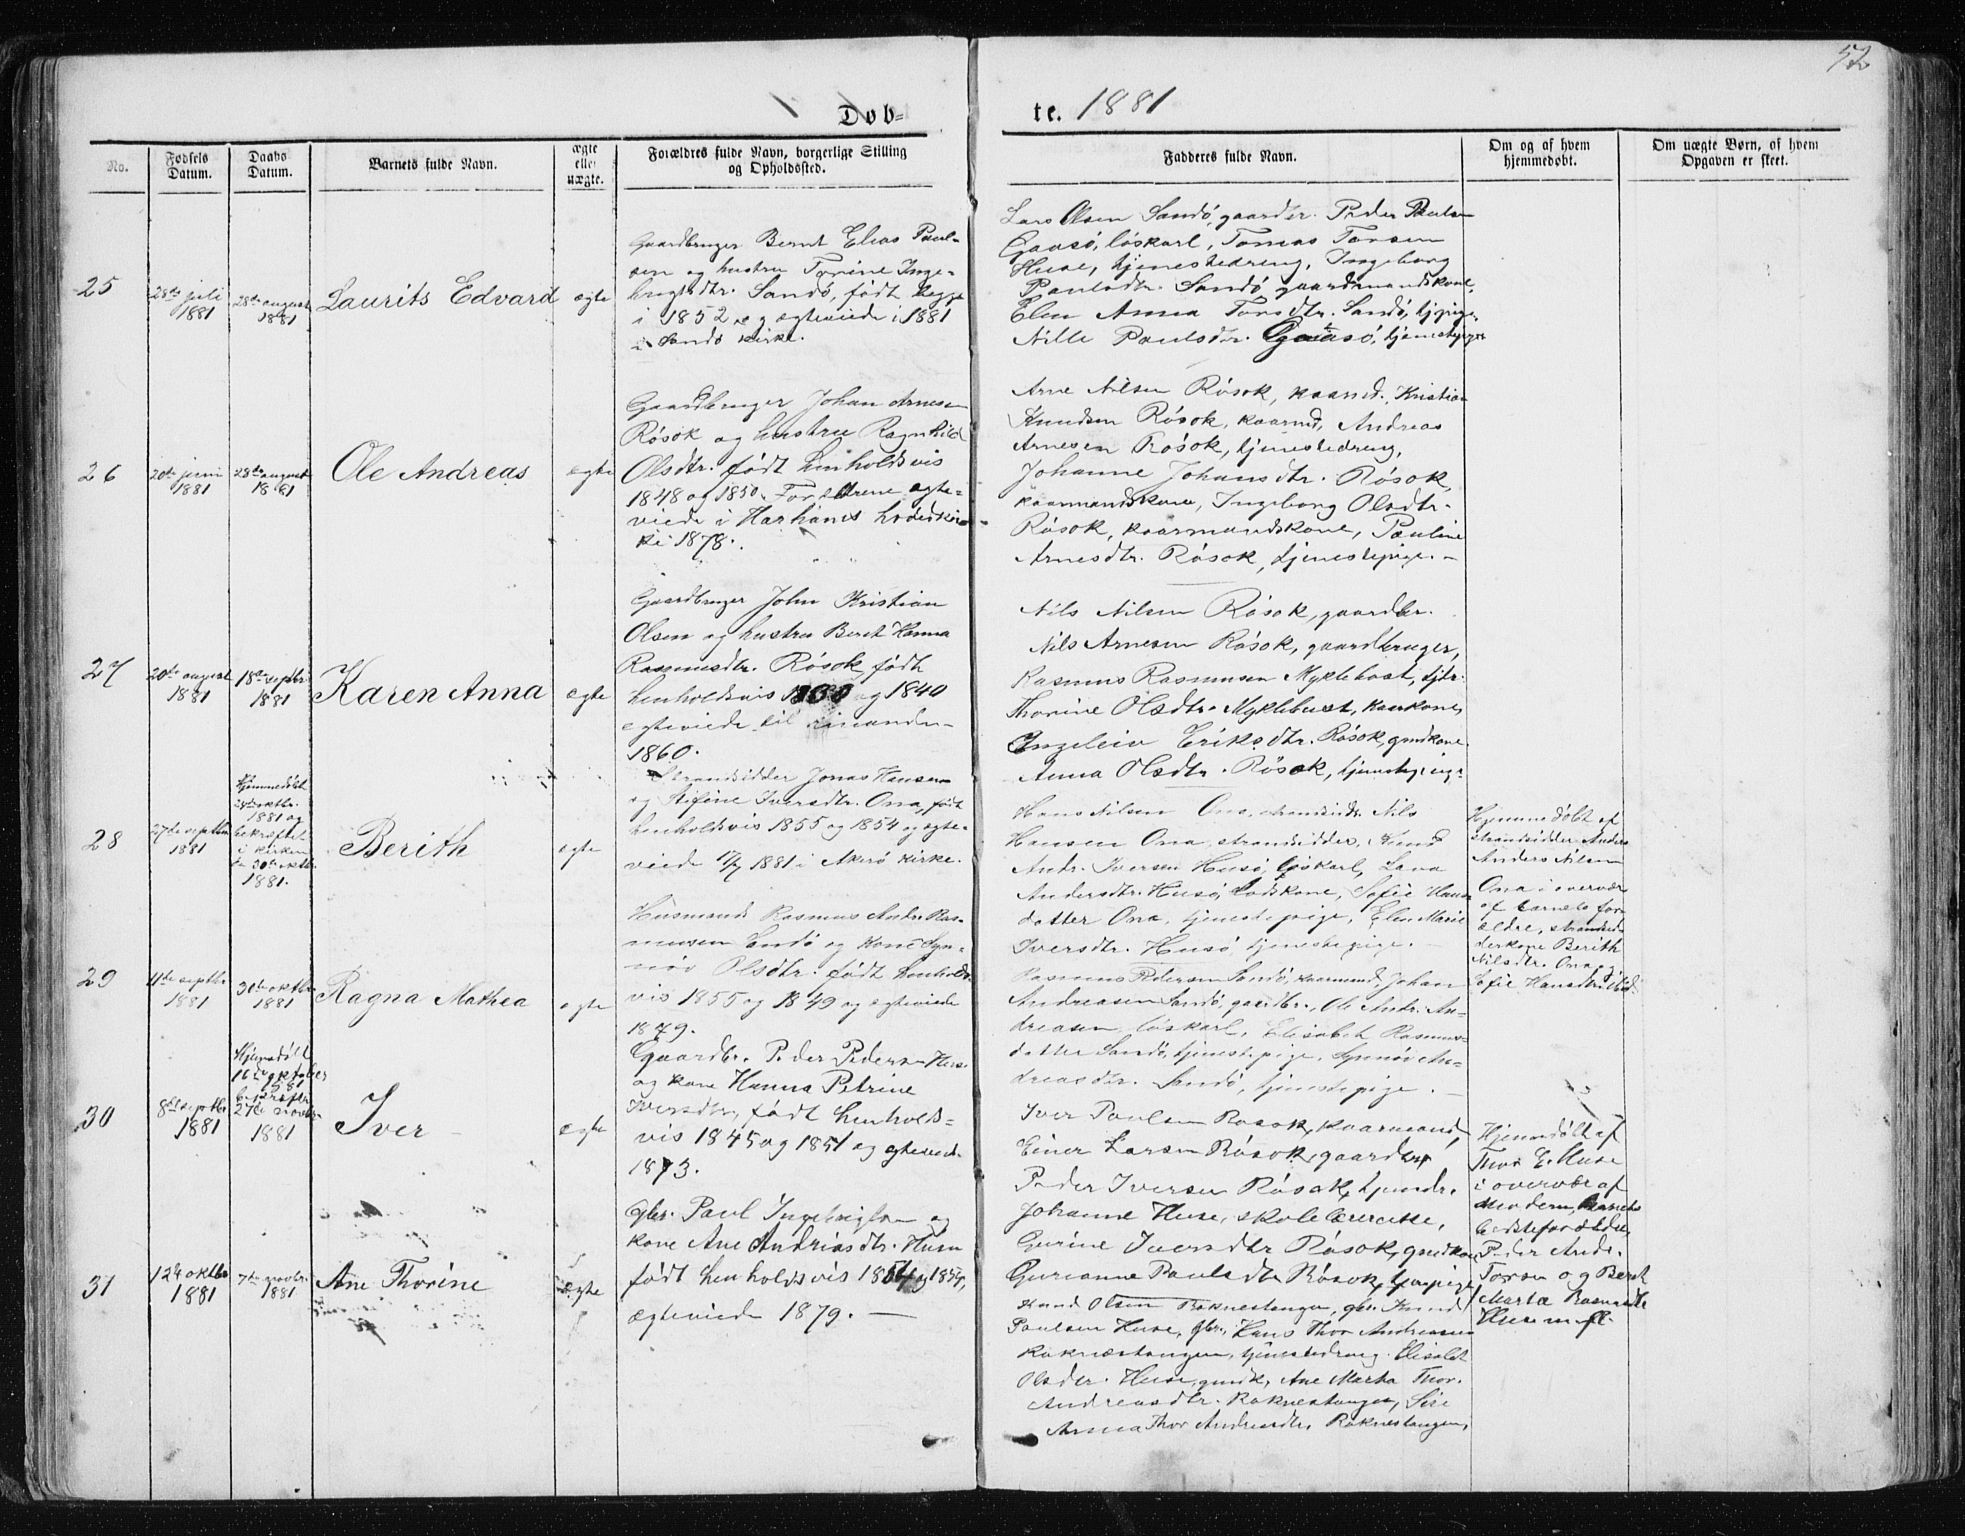 52
Døb- te. 1881
No.
Fødsels Datum.
Daabs Datum.
Barnets fulde Navn.
ægte eller uægte.
Forældres fulde Navn, borgerlige Stilling
og Opholdssted.
Fadderes fulde Navn.
Om og af hvem
hjemmedøbt.
Om uægte Børn, af hvem
Opgaven er skeet.
25
28de juli
1881
28de august
1881
Laurits Edvard
ægte
Gaardbruger Bernt Elias Paul-
sen og hustru Torine Inge-
brigtsdtr. Sandö, født begge
i 1852 og ægteviede i 1881
i Sandö kirke.
Lars Olsen Sandö, gaardbr. Peder Paulsen
Gaasö, löskarl, Tomas Torsen
Huse, tjenestedreng, Ingeborg
Paulsdtr. Sandö gaardmandskone,
Elen Anna Torsdtr. Sandö, tjpige,
Nille Paulsdtr. Gaasö, tjenestepige
26
20de juni
1881
28de august
1881
Ole Andreas
ægte
Gaardbruger Johan Arnesen
Rösok og hustru Ragnhild
Olsdtr. født henholdsvis
1848 og 1850. Forældrene ægte-
viede i Harhams hovedkir-
ke i 1878.
Arne Nilsen Rösok, kaarmd., Kristian
Knudsen Rösok, kaarmd, Andreas
Arnesen Rösok, tjenestedreng,
Johanne Johansdtr. Rösok,
kaarmandskone, Ingeborg Olsdtr.
Rösok, kaarmandskone, Pauline
Arnesdtr. Rösok, tjenestepige. -
27
20de august
1881
18de septbr.
1881
Karen Anna
ægte
Gaardbruger John Kristian
Olsen og hustru Berit Hanna
Rasmusdtr. Rösok, født
henholdsvis 1830 og 1840
ægteviede til hinanden
1860.
Nils Nilsen Rösok, gaardbr.
Nils Arnesen Rösok, gaardbruger,
Rasmus Rasmusen Myklebost, tjdr.
Thorine Olsdtr. Myklebust, kaarkone,
Ingeleiv Eriksdtr. Rösok, gmdkone
Anna Olsdtr. Rösok, tjenestepige.
28
27de septbr
1881
Hjemmedöbt
24de oktbr.
1881 og
bekræftet
i kirken
30te oktbr.
1881.
Berith
ægte
Strandsidder Jonas Hansen
og Stefine Iversdtr. Ona, født
henholdsvis 1855 og 1854 og ægte-
viede 17/7 1881 i Akerö kirke.
Hans Nilsen Ona, strandsidr. Nils
Hansen Ona, strandsidder, Knud
Andr. Iversen Husö, löskarl, Lava
Andersdtr. Husö, Lodskone, Sofie Hans-
datter Ona, tjenestepige, Elen Marie
Iversdtr. Husö, tjenestepige. -
Hjemmedöbt af
strandsidder Anders
Anders Nilsen
Ona i overvær
af barnets for-
ældre, strandsid-
derkone Berith
Nilsdtr. Ona og
Sofie Hansdtr.
29
11te septbr
1881
30te oktbr
1881
Ragna Mathea
ægte
Husmand Rasmus Andr. Ras-
musen Sandö og kone Syn-
növ Olsdtr. født henholds-
vis 1855 og 1849 og ægteviede
1879.
Rasmus Pedersen Sandö, kaarmand, Johan
Andreasen Sandö, gaardbr., Ole Andr. An-
dreasen, löskarl, Elisabet Rasmus-
datter Sandö, tjenestepige, Synnöv An-
dreasdtr. Sandö, tjenestepige. -
30
8de septbr
1881
Hjemdöbt
16de oktober
1881
bekræftet
27de novbr.
1881
Iver
ægte
Gaardbr. Peder Pedersen Huse
og kone Hanna Petrine
Iversdtr., født henholds-
vis 1845 og 1851 og ægteviede
1873.
Iver Paulsen Rösok, kaarmand,
Einer Larsen Rösok, gaardbr,
Peder Iversen Rösok, tjendr.
Johanne Huse, skolelærerske,
Gurine Iversdtr Rösok, gmdkone
Gurianne Paulsdtr Rösok, tjenpige
Hjemmedöbt af
Thor E. Huse
i overvær af
Moderen, barnets
bedsteforældre,
Peder Andr.
Torsen og Berit
Marta Rasmusdtr
Huse m. fl.
31
12te oktbr
1881
7de novbr.
1881
Ane Thorine
ægte
gbr. Paul Ingebrigtsen og
kone Ane Andreasdtr. Husen
født henholdsvis 1854 og 1854,
ægteviede 1879. —
Knud Olsen Raknestangen, gbr. Knud
Paulsen Huse, gbr., Hans Thor Andreassen
Raknestangen, tjenestedreng. Elisabet
Olsdtr. Huse, gmdk, Ane Marta Thor.
Andreasdtr. Raknestangen, Sise
Anna Thor Andreasdtr. Raknestangen,